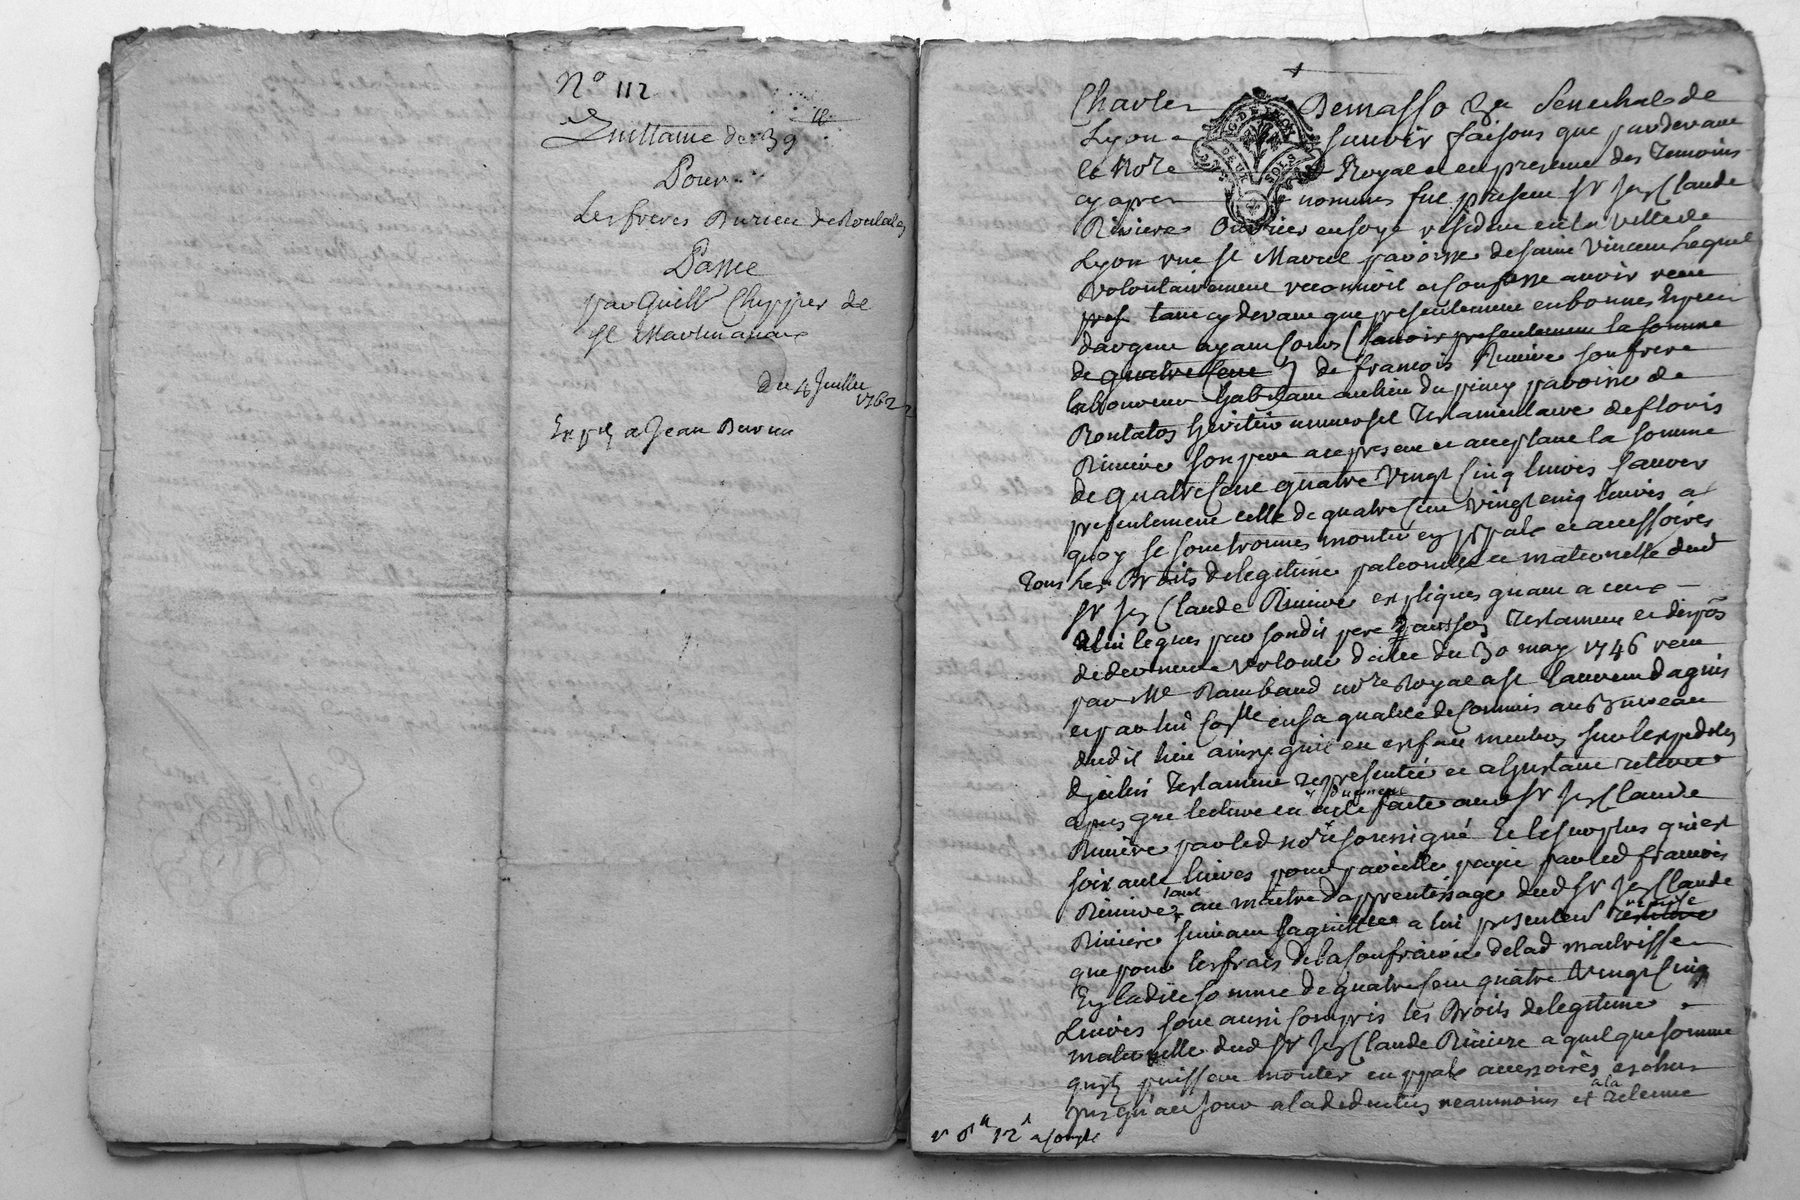 N° 112
Quittance de 39
Pour
Les freres Riviere de Rontalon
Passée
par Guill^e Chypier de
S^t Martin
du 4 Juillet
1762
Exp^é a Jean
Charles Demasso S^gr Senechal de
Lyon scavoir faisons que pardevant
le No^re Royal et en presence des temoins
cy apres nommés fut present S^r Jean Claude
Riviere ouvrier en soye resident en la ville de
Lyon rue S^t Marcel paroisse de saint Vincent Lequel
volontairement reconnoit et confesse avoir receu
tant cy devant que presentement en bonnes especes
d'argent ayant cours (scavoir presentement la somme
de quatre cent) de francois Riviere son frere
laboureur habitant au lieu du paroisse de
Rontalon heritier universel testamentaire de
Riviere son pere acceptant la somme
de quatre cent quatre vingt cinq livres scavoir
presentement celle de quatre cent vingt cinq livres a
quoy se sont trouvés monter en p^pal et accessoires
Tous les Droits de legitime paternelle et maternelle dud
S^r Jean Claude Riviere expliques quant a ceux
a lui legués par sondit pere dans son Testament et dispo^on
de derniere volonté datée du 30 may 1746 receu
par M^e Rambaud no^re Royal a S^t Laurent dagnis
et par lui en sa qualité de commis au Bureau
dudit lieu ainsy quil en est fait mention sur lexpedition
dicelui Testament representée et a linstant retirée
apres que lecture en a eté faite aud S^r Jean Claude
Riviere par led no^re soussigné Et le surplus qui est
soixante livres pour pareille payée par led francois
Riviere tant au maitre dapprentissage dud S^r Jean Claude
Riviere suivant la quittance a lui presentem^t remise
que pour les frais de la de lad maitrisse
En ladite somme de quatre cent quatre vingt cinq
Livres sont aussi compris les Droits de legitime
maternelle dud S^r Jean Claude Riviere a quelque somme
quils puissent monter en p^pal accessoires
jusqu'a ce jour a la deduction neanmoins et a la retenue